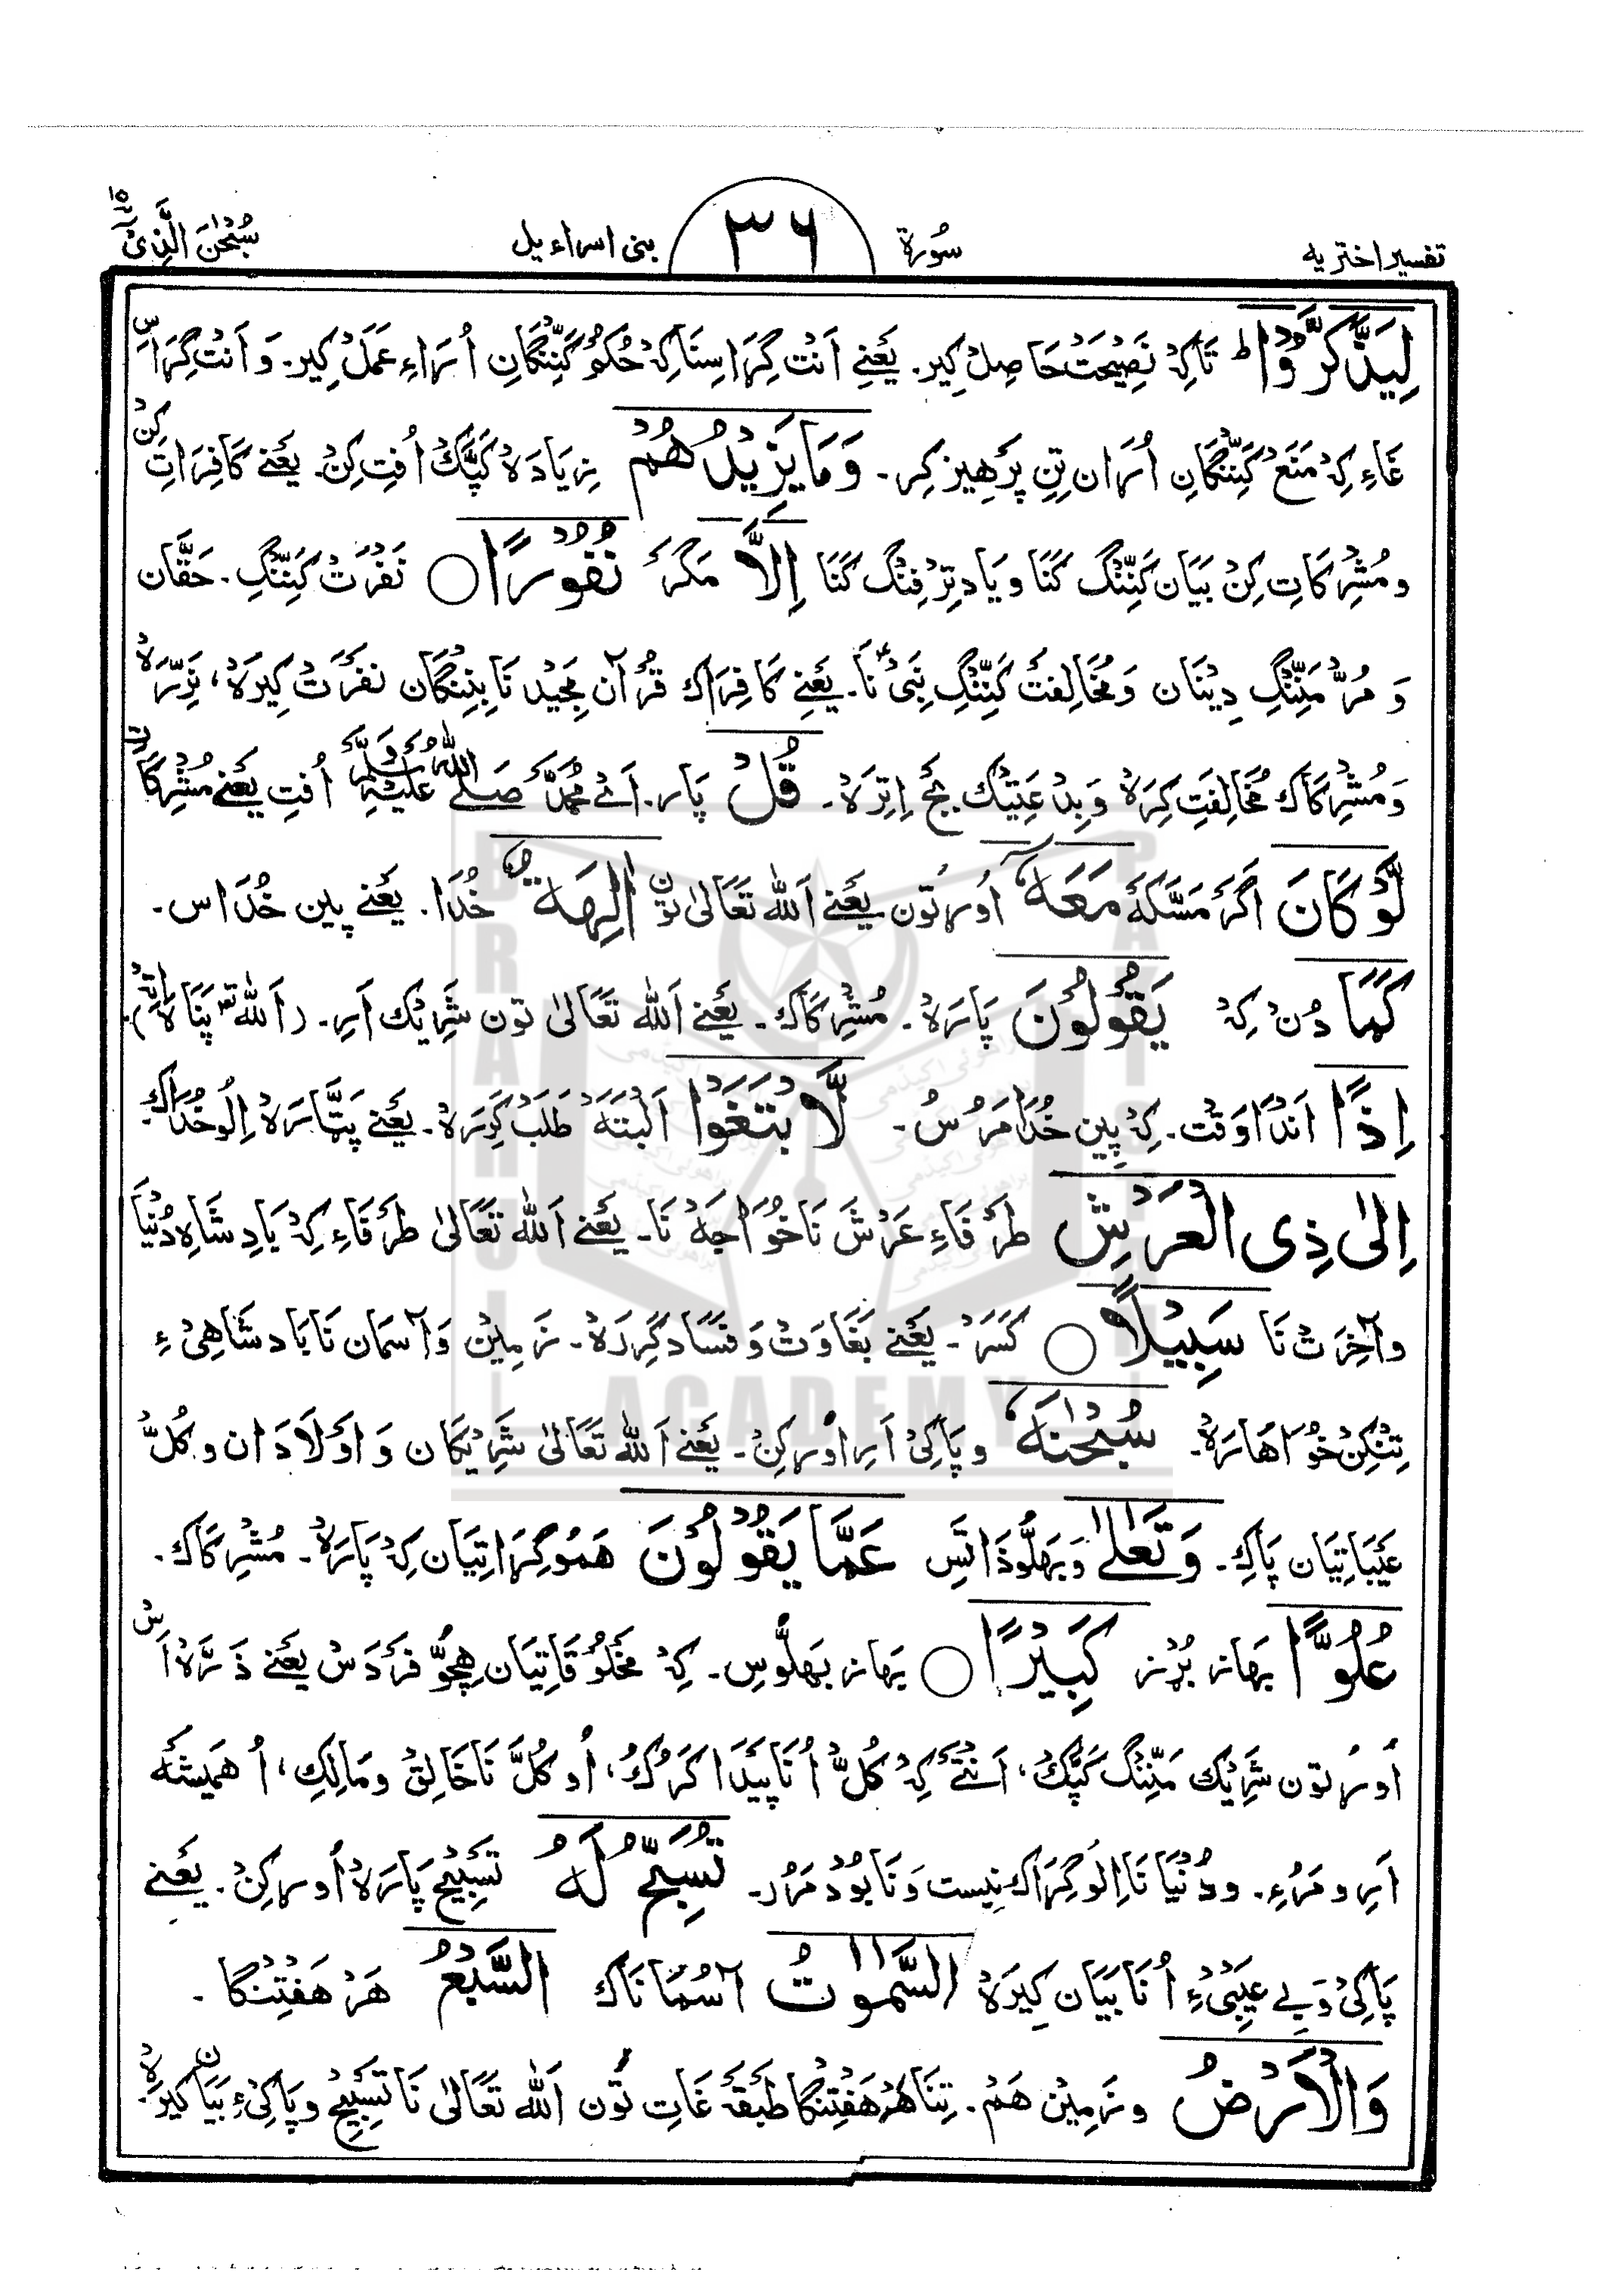 تفسیر اختریه سُورة ٣٦ بنی اسراءیل سُبْحٰنَ الَّذِیْۤ ١٥
لِیَذَّكَّرُوْاؕ تَاکِہ نَصِیْحَتْ حَاصِلْ کِیر۔ یَعْنِے اَنْت گِرَاسِنَا کِہ حُکَمْ کَنِّنْگَانِ اُرَاءِ عَمَلْ کِیر۔ وَ اَنْت گِرَاسِّ
غَاءِ کِہ مَنَعْ کَنِّنْگَانِ اُرَان تِنِ پَرْهِیز کِر۔ وَمَا یَزِیْدُهُمْ زِیَادَہ کَپَّکْ اُفِت کِنْ۔ یَعْنے کَافِرَاتِ کِنْ
و مُشْرِکَاتِ کِنْ بَیَان کَنِّنْگ کَنَا و یَاد تِرْفِنْگ کَنَا اِلَّا مَگَرْ نُفُوْرًا ○ نَفْرَتْ کَنِّنْگِ۔ حَقَّان
وَ مُرُّ مَنِّنْگِ دِیْنَان وَ مُخَالِفَتْ کَنِّنْگِ نَبِیؑ نَا۔ یَعْنِے کَافِرَاک قُرْآن مَجِیْد نَا بِنِنْگَان نَفْرَتْ کِیرَہ، نَرِّرَہ
وَ مُشْرِکَاک مُخَالِفَتِ کِرَہ وَ بِدْعَتِیْک هِچْ اِتِرَہ۔ قُلْ پَار۔ اَئے مُحَمَّدْ صَلَے اللّٰہُ عَلَیْہِ وَسَلَّمَ اُفِت یَعْنے مُشْرِکَاتِ
لَّوْ كَانَ اَگَرْ مَسَّکَہ مَعَهٗۤ اُورْتُون یَعْنے اَللّٰہ تَعَالیٰ تُون اٰلِهَةٌ خُدَا۔ یَعْنے پِین خُدَاس۔
كَمَا دُنْ کِہ یَقُوْلُوْنَ پَارَہ۔ مُشْرِکَاک۔ یَعْنے اَللّٰہ تَعَالیٰ تُون شَرِیْک اَرِ۔ (اَللّٰہ تہ پَنَاہ اِتِہ)
اِذًا اَنْدَا وَقْت۔ کِہ پِین خُدَا مَرُسُ۔ لَّابْتَغَوْا اَلْبَتَّہ طَلَبْ کَرِرَہ۔ یَعْنے پَٹَّارَہ اِلُو خُدَاک۔
اِلٰى ذِی الْعَرْشِ طَرْفَاءِ عَرْشَ نَا خُوَاجَہ نَا۔ یَعْنے اَللّٰہ تَعَالیٰ طَرْفَاءِ کِہ یَادِ شَاہِ دُنْیَا
و آخِرَتْ نَا سَبِیْلًا ○ کَسَرْ۔ یَعْنے بَغَاوَتْ وَ فَسَاد کَرِرَہ۔ زَمِیْن وَ آسْمَان نَا بَادشَاهِیْ ءِ
تِنْکِنْ خُوَاهَارَہ۔ سُبْحٰنَهٗ و پَاکِیْ اَرِ اُورْکِنْ۔ یَعْنے اَللّٰہ تَعَالیٰ شَرِیْکَان وَ اَوْلَادَان و کُلُّ
عَیْبَاتِیَان پَاکِ۔ وَتَعٰلٰى وَ بَهلُّو ذَاتَسِ عَمَّا یَقُوْلُوْنَ هَمُو گِرَاتِیَان کِہ پَارَہ۔ مُشْرِکَاک۔
عُلُوًّا بَهاز بُرْز كَبِیْرًا ○ بَهاز بَهلُّوس۔ کِہ مَخْلُوْقَاتِیَان هِچُّو فَرْدَسْ یَعْنے ذَرَّہ اَسْ
اُورْتُون شَرِیْک مَنِّنْگ کَپَّکْ، اَنْتَے کِہ کُلُّ اُنَا پَیْدَا کَرُکُ، اُو کُلَّ نَا خَالِقْ و مَالِکِ، اُ هَمِیْشَہ
اَرِ و مَرُءِ۔ و دُنْیَا نَا اِلُو گِرَاک نِیست وَ نَابُوْد مَرُر۔ تُسَبِّحُ لَهُ تَسْبِیْح پَارَہ اُورْکِنْ۔ یَعْنے
پَاکِیْ وَ بے عَیْبِیْ ءِ اُنَا بَیَان کِیرَہ السَّمٰوٰتُ آسْمَانَاک السَّبْعُ هَرْ هَفْتِنْگَا۔
وَالْاَرْضُ و زَمِیْن هَمْ۔ تِنَا هَرْ هَفْتِنْگَا طَبْقَہ غَاتِ تُون اَللّٰہ تَعَالیٰ نَا تَسْبِیْح و پَاکِیْ ءِ بَیَان کِیرَہ۔
BRAHUI ACADEMY PAKISTAN